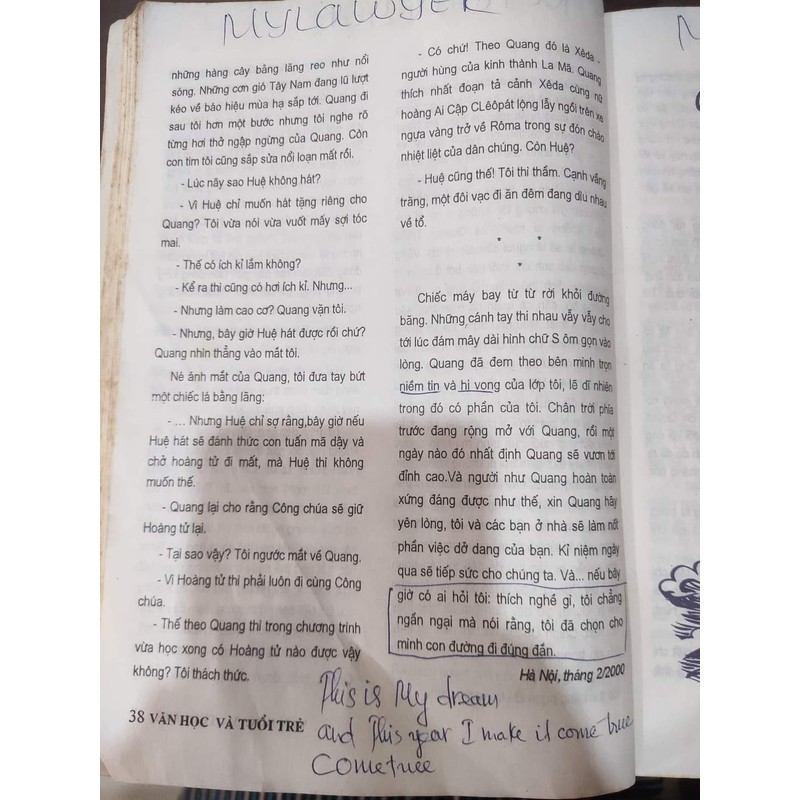 MYLAWYER
những hàng cây bằng lăng reo như nổi
sóng. Những cơn gió Tây Nam đang lũ lượt
kéo về báo hiệu mùa hạ sắp tới. Quang đi
sau tôi hơn một bước nhưng tôi nghe rõ
từng hơi thở ngập ngừng của Quang. Còn
con tim tôi cũng sắp sửa nổi loạn mất rồi.
- Lúc nãy sao Huệ không hát?
- Vì Huệ chỉ muốn hát tặng riêng cho
Quang? Tôi vừa nói vừa vuốt mấy sợi tóc
mai.
- Thế có ích kỉ lắm không?
- Kể ra thì cũng có hơi ích kỉ. Nhưng...
- Nhưng làm cao cơ? Quang vặn tôi.
- Nhưng, bây giờ Huệ hát được rồi chứ?
Quang nhìn thẳng vào mắt tôi.
Né ánh mắt của Quang, tôi đưa tay bứt
một chiếc lá bằng lăng:
- ... Nhưng Huệ chỉ sợ rằng,bây giờ nếu
Huệ hát sẽ đánh thức con tuấn mã dậy và
chở hoàng tử đi mất, mà Huệ thì không
muốn thế.
- Quang lại cho rằng Công chúa sẽ giữ
Hoàng tử lại.
- Tại sao vậy? Tôi ngước mắt về Quang.
- Vì Hoàng tử thì phải luôn đi cùng Công
chúa.
- Thế theo Quang thì trong chương trình
vừa học xong có Hoàng tử nào được vậy
không? Tôi thách thức.
38 VĂN HỌC VÀ TUỔI TRẺ
- Có chứ! Theo Quang đó là Xêda -
người hùng của kinh thành La Mã. Quang
thích nhất đoạn tả cảnh Xêda cùng nữ
hoàng Ai Cập CLêôpát lộng lẫy ngồi trên xe
ngựa vàng trở về Rôma trong sự đón chào
nhiệt liệt của dân chúng. Còn Huệ?
- Huệ cũng thế! Tôi thì thầm. Cạnh vầng
trăng, một đôi vạc đi ăn đêm đang dìu nhau
về tổ.
* *
*
Chiếc máy bay từ từ rời khỏi đường
băng. Những cánh tay thi nhau vẫy vẫy cho
tới lúc đám mây dài hình chữ S ôm gọn vào
lòng. Quang đã đem theo bên mình trọn
niềm tin và hi vọng của lớp tôi, lẽ dĩ nhiên
trong đó có phần của tôi. Chân trời phía
trước đang rộng mở với Quang, rồi một
ngày nào đó nhất định Quang sẽ vươn tới
đỉnh cao.Và người như Quang hoàn toàn
xứng đáng được như thế, xin Quang hãy
yên lòng, tôi và các bạn ở nhà sẽ làm nốt
phần việc dở dang của bạn. Kỉ niệm ngày
qua sẽ tiếp sức cho chúng ta. Và... nếu bây
giờ có ai hỏi tôi: thích nghề gì, tôi chẳng
ngần ngại mà nói rằng, tôi đã chọn cho
mình con đường đi đúng đắn.
Hà Nội, tháng 2/2000
This is My dream
and This year I make it come true
Cometruee